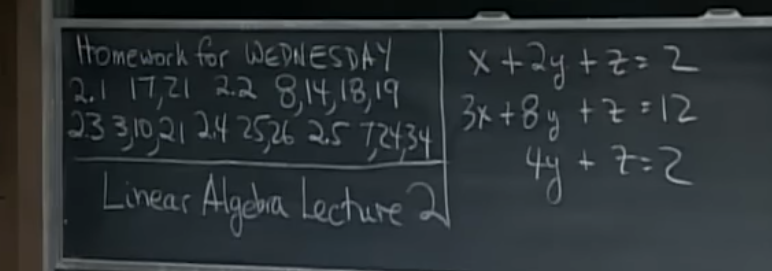 Homework for WEDNESDAY
2.1 17,21 2.2 8,14,18,19
2.3 3,10,21 2.4 25,26 2.5 7,24,34
Linear Algebra Lecture 2
x + 2y + z = 2
3x + 8y + z = 12
4y + z = 2